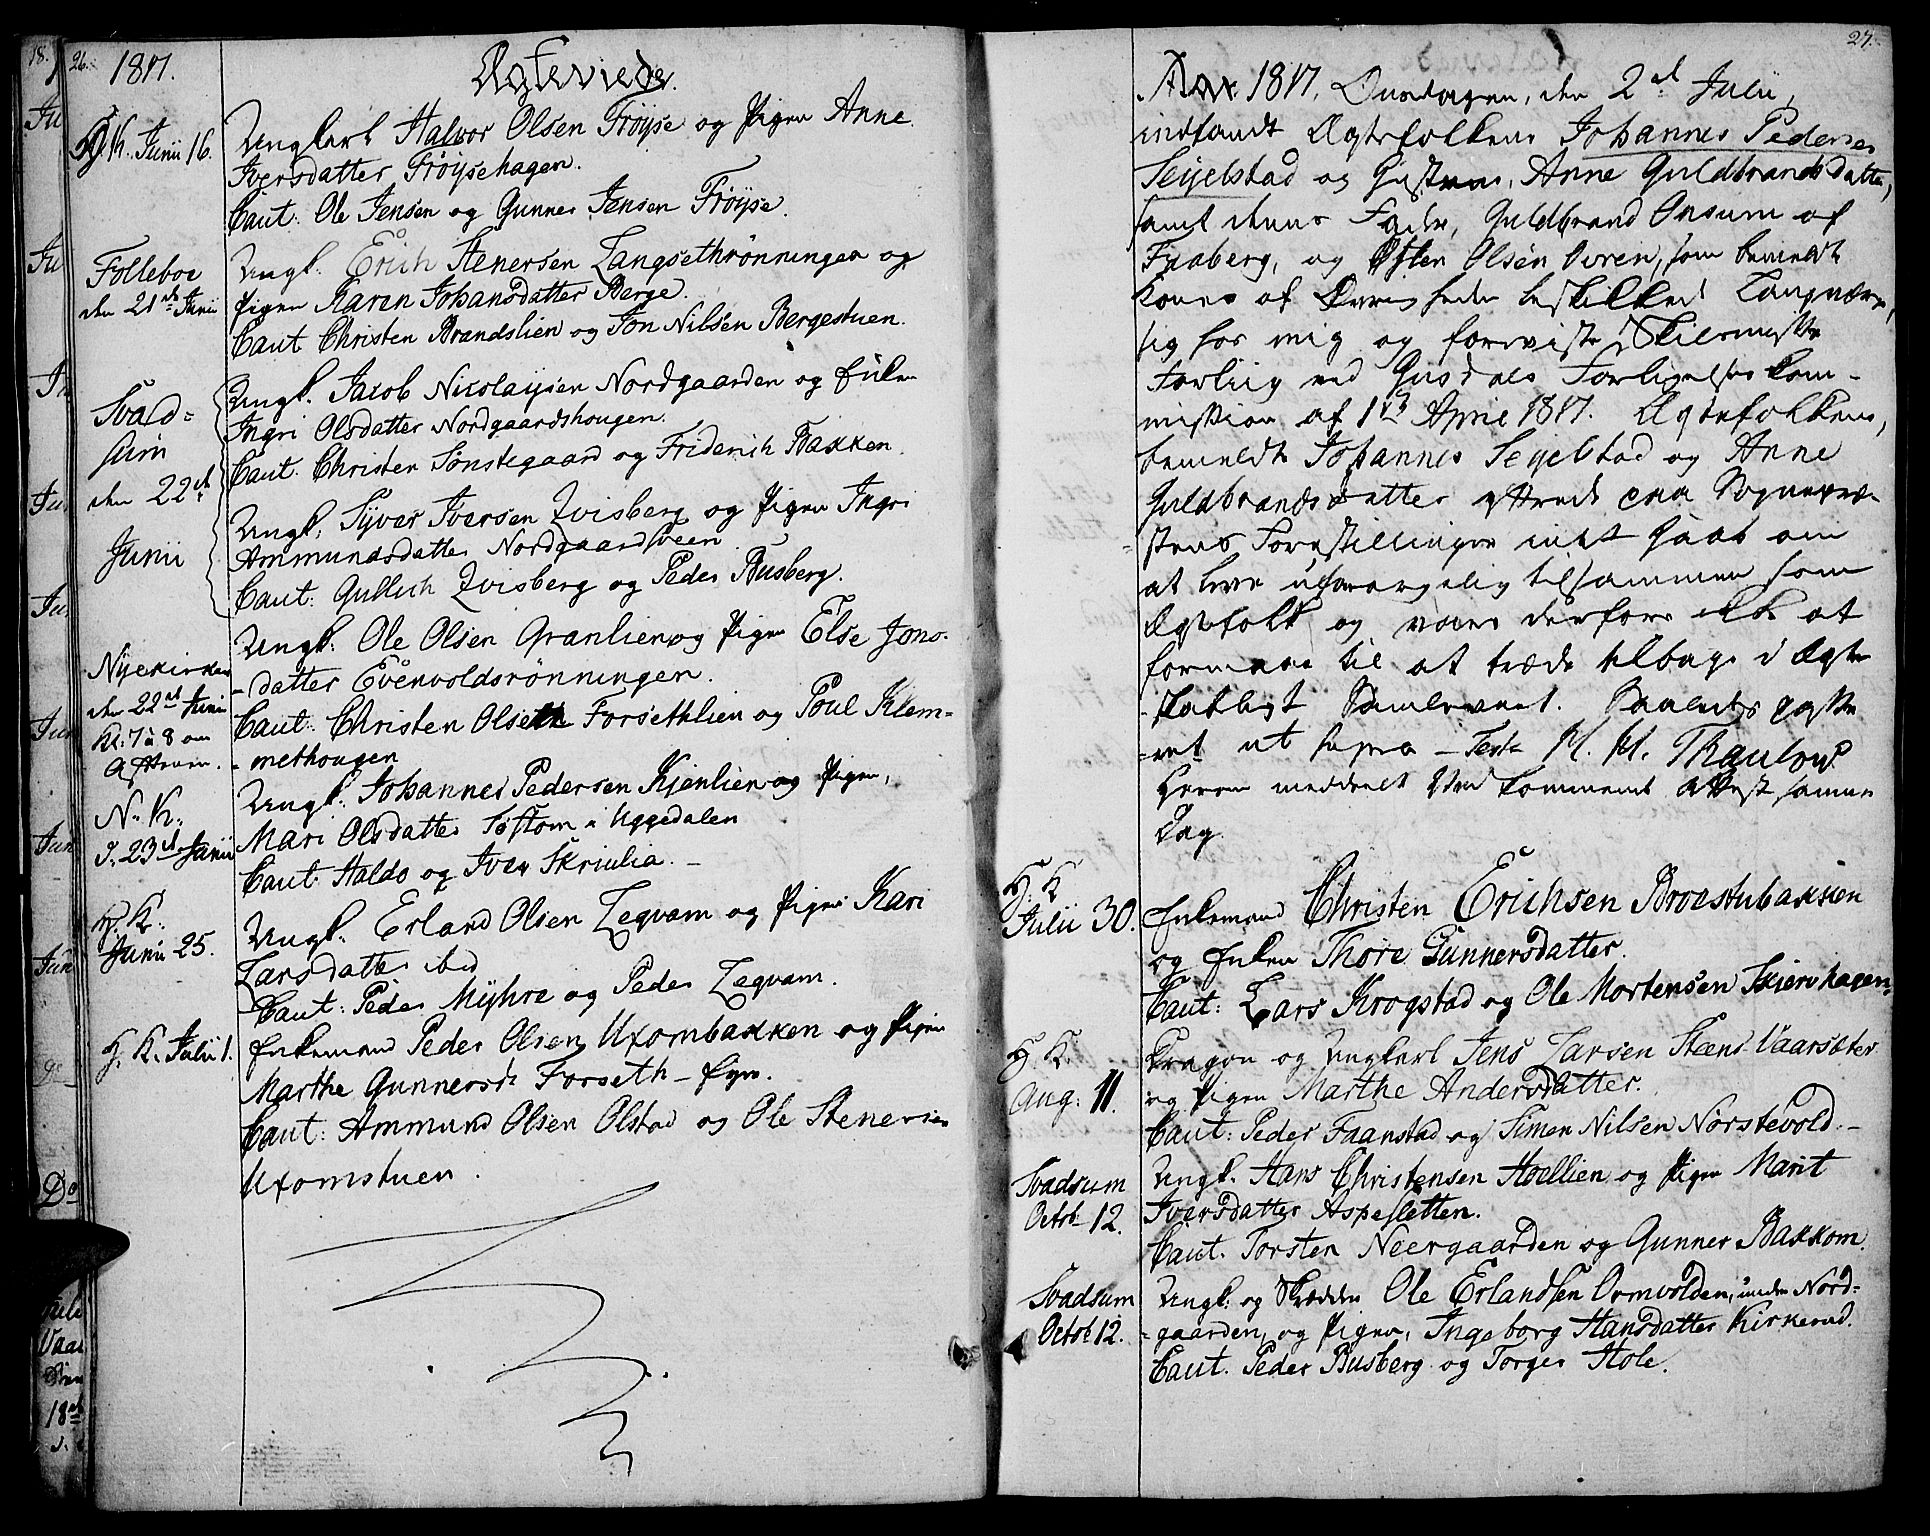 26.
1817.
Ægteviede.
H. K. Junii 16.
Ungkarl Halvor Olsen Fröyse og Pigen Anne
Iversdatter Fröysehagen.
Caut: Ole Jensen og Gunner Jensen Fröyse.
Folleboe
den 21de Junii
Ungk: Erich Stenersen Langsethrönningen og
Pigen Karen Johansdatter Berge.
Caut Christen Brandslien og Jon Nilsen Bergestuen.
Svad=
sum
den 22de
Junii
Ungk. Jacob Nicolaysen Nordgaarden og Enken
Ingri Olsdatter Nordgaardshougen.
Caut. Christen Sönstegaard og Friderich Bakken.
Ungk. Syver Iversen Qvisberg og Pigen Ingri
Ammundsdatter Nordgaardsveen
Caut: Gullich Qvisberg og Peder Busberg.
Nyekirken
den 22de Junii
Kl: 7 à 8 om
Aftenen.
Ungk: Ole Olsen Granlien og Pigen Else Jons-
-datter Evenvoldsrönningen.
Caut: Christen Olseth Forsethlien og Poul Klem-
-methougen
N. K.
d. 23de Junii
Ungk: Johannes Pedersen Kjenlien og Pigen,
Mari Olsdatter Töftom i Uggedalen
Caut. Haldo og Iver Skriulia. -
H. K.
Junii 25.
Ungk. Erland Olsen Legvam og Pigen Kari
Larsdatter ibid
Caut: Peder Myhre og Peder Legvam.
H. K. Julii 1.
Enkemand Peder Olsen Uxombakken og Pigen
Marthe Gunnersdr Forseth-
Caut: Ammund Olsen Olstad og Ole Stenersen
Uxomstuen.
27.
Anno 1817. Onsdagen, den 2de Julii,
indfandt Ægtefolkene Johannes Pedersen
Seyelstad og Hustrue, Anne Guldbrandsdatter,
samt dennes Fader, Guldbrand Onsum af
Faaberg, og Östen Olsen Övren, som bemeldt
Kones af Övrigheden beskikket Laugværge,
sig for mig og foreviste Skilsmisse
Forliig ved Gusdals Forligelses Com-
mission af 1ste April 1817. Ægtefolkene,
bemeldte Johannes Seyelstad og Anne
Guldbrandsdatter yttrede paa Sognepræ-
stens Forestillinger intet Haab om
at leve uforargelig tilsammen som
Ægtefolk og vare derfore ikke at
formaae til at træde tilbage i Ægte-
skabeligt Samlevnet. Saaledes passe-
-ret ut supra - Test: H. H. Thaulow
Herom meddeelt Vedkommende Attest samme
Dag.
H. K
Julii 30.
Enkemand Christen Erichsen Broestubakken
og Enken Thore Gunnersdatter.
Caut: Lars Krogstad og Ole Mortensen Skiervhagen.
H. K.
Aug: 11.
Dragon og Ungkarl Jens Larsen Stand-Vaarsæter
og Pigen Marthe Andersdatter.
Caut: Peder Faanstad og Simen Nilsen Nörstevold. -
Svadsum
Octob: 12.
Ungk. Hans Christensen Hoellien og Pigen Marit
Iversdatter Aspesletten.
Caut. Torsten Neergaarden og Gunner Bakkom.
Svadsum
Octob: 12.
Ungk: og Skrædder Ole Erlandsen Ormvolden, under Nord-
-gaarden, og Pigen, Ingeborg Hansdatter Kirkerud.
Caut. Peder Busberg og Torger Hole.